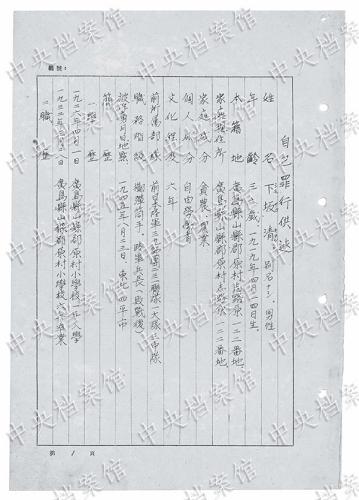 編號:
自己罪行供述
姓名 下坂清 別名ナシ、男性
年齡 歲 一九一九年四月二四日生
本籍地 廣島縣山縣郡原村志路原一二二番地
家庭現住所 廣島縣山縣郡原村志路原一二二番地
家庭成分 貧農、農業
個人成分 自由勞働者
文化程度 六年
前所屬部隊 前日本陸軍三九師團二三二聯隊一大隊三中隊
職務階級 擲彈筒手、陸軍兵長(敗戰後)
一九四五年八月二三日 東北四平市
簡歷
一 學歷
一九二六年四月一日 廣島縣山縣郡原村小學校ニ入學
廣島縣山縣郡原村小學校六年卒業
二 職歷
第 1 頁
中央档案馆